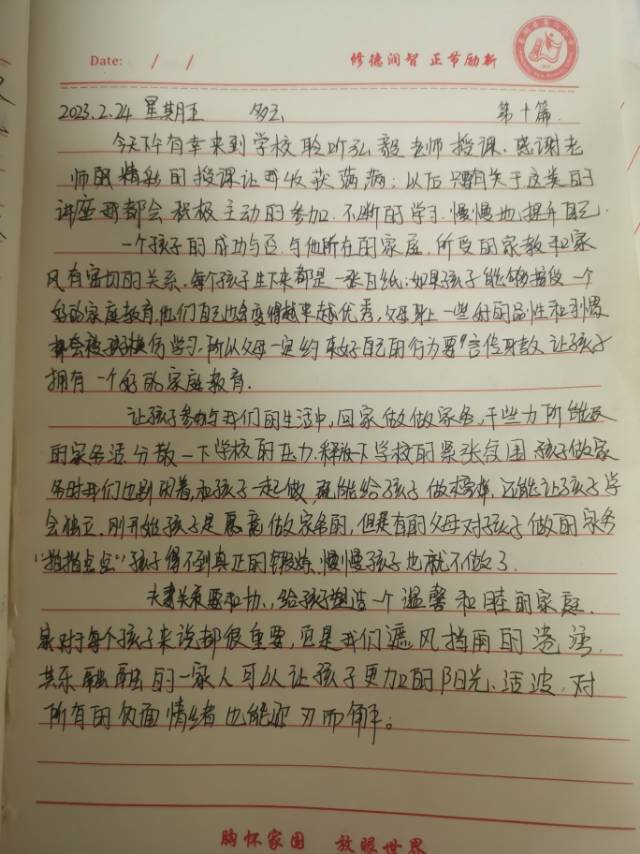 Date: / /
修德润智 正节励新
2023.2.24 星期五 多云 第十篇
今天下午有幸来到学校聆听弘毅老师授课.感谢老
师的精彩的授课让我收获满满;以后只要有关于这类的
讲座我都会积极主动的参加.不断的学习.慢慢地提升自己.
一个孩子的成功与否.与他所在的家庭.所受的家教和家
风有密切的关系.每个孩子生下来都是一张白纸;如果孩子能够接受一个
好的家庭教育.他们自己也会变得越来越优秀,父母身上一些好的品性和习惯
都会被孩子模仿学习.所以父母一定约束好自己的行为要"言传身教让孩子
拥有一个好的家庭教育.
让孩子参与我们的生活中,回家做做家务,干些力所能及
的家务活.分散一下学校的压力.释放下学校的紧张氛围.孩子做家
务时我们也别闲着,和孩子一起做.既能给孩子做榜样,还能让孩子学
会独立.刚开始孩子是愿意做家务的,但是有的父母对孩子做的家务
"指指点点"孩子得不到真正的锻炼.慢慢孩子也就不做了.
夫妻关系要和协.给孩子创造一个温馨和睦的家庭.
家对于每个孩子来说都很重要,它是我们遮风挡雨的港湾
其乐融融的一家人可以让孩子更加的阳光、活波.对
所有的负面情绪也能迎刃而解。
胸怀家国 放眼世界